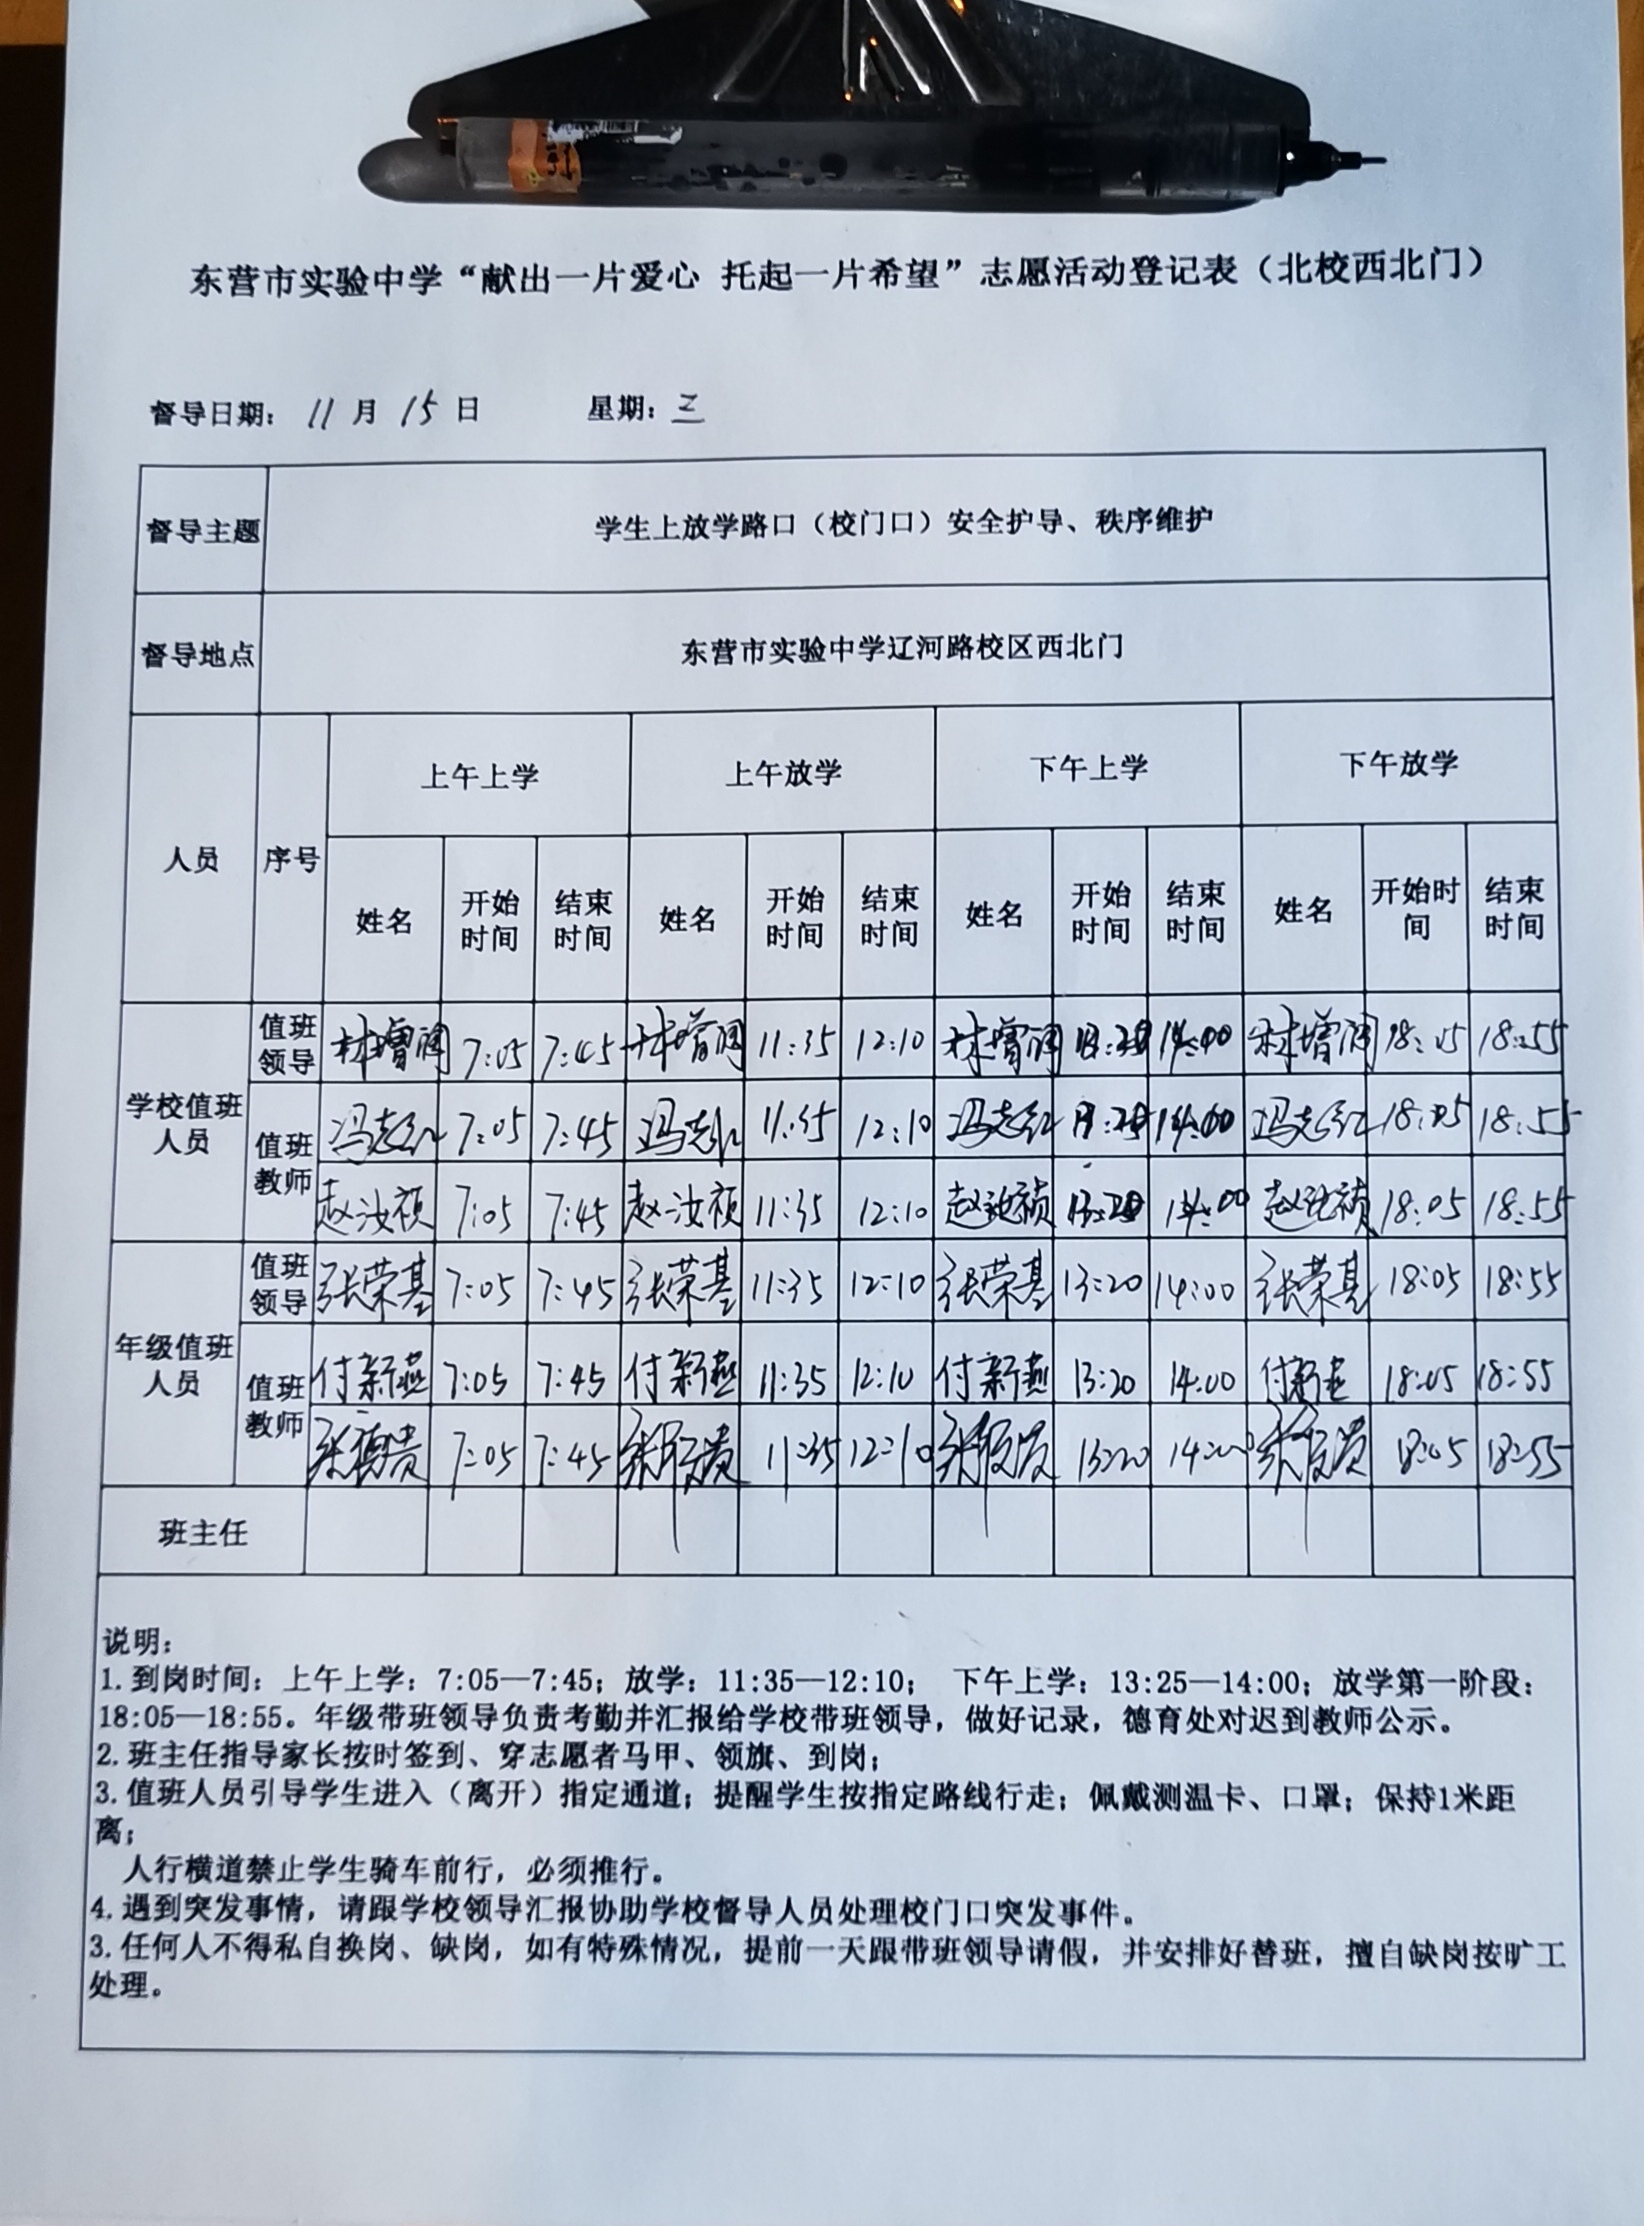 东营市实验中学“献出一片爱心 托起一片希望”志愿活动登记表（北校西北门）
督导日期：11月15日 星期：三
督导主题 学生上放学路口（校门口）安全护导、秩序维护
督导地点 东营市实验中学辽河路校区西北门
人员 序号 上午上学 上午放学 下午上学 下午放学
姓名 开始时间 结束时间 姓名 开始时间 结束时间 姓名 开始时间 结束时间 姓名 开始时间 结束时间
学校值班人员
值班领导 林增 7:05 7:45 林增 11:35 12:10 林增 14:00 林增 18:05 18:55
值班教师 冯志红 7:05 7:45 冯志红 11:35 12:10 冯志红 14:00 冯志红 18:05 18:55
赵汝祯 7:05 7:45 赵汝祯 11:35 12:10 赵汝祯 13:20 14:00 赵汝祯 18:05 18:55
年级值班人员
值班领导 张荣基 7:05 7:45 张荣基 11:35 12:10 张荣基 13:20 14:00 张荣基 18:05 18:55
值班教师 付新燕 7:05 7:45 付新燕 11:35 12:10 付新燕 13:20 14:00 付新燕 18:05 18:55
7:05 7:45 11:35 12:10 13:20 14:00 18:05 18:55
班主任
说明：
1.到岗时间：上午上学：7:05—7:45；放学：11:35—12:10； 下午上学：13:25—14:00；放学第一阶段：
18:05—18:55。年级带班领导负责考勤并汇报给学校带班领导，做好记录，德育处对迟到教师公示。
2.班主任指导家长按时签到、穿志愿者马甲、领旗、到岗；
3.值班人员引导学生进入（离开）指定通道；提醒学生按指定路线行走；佩戴测温卡、口罩；保持1米距
离；
人行横道禁止学生骑车前行，必须推行。
4.遇到突发事情，请跟学校领导汇报协助学校督导人员处理校门口突发事件。
3.任何人不得私自换岗、缺岗，如有特殊情况，提前一天跟带班领导请假，并安排好替班，擅自缺岗按旷工
处理。